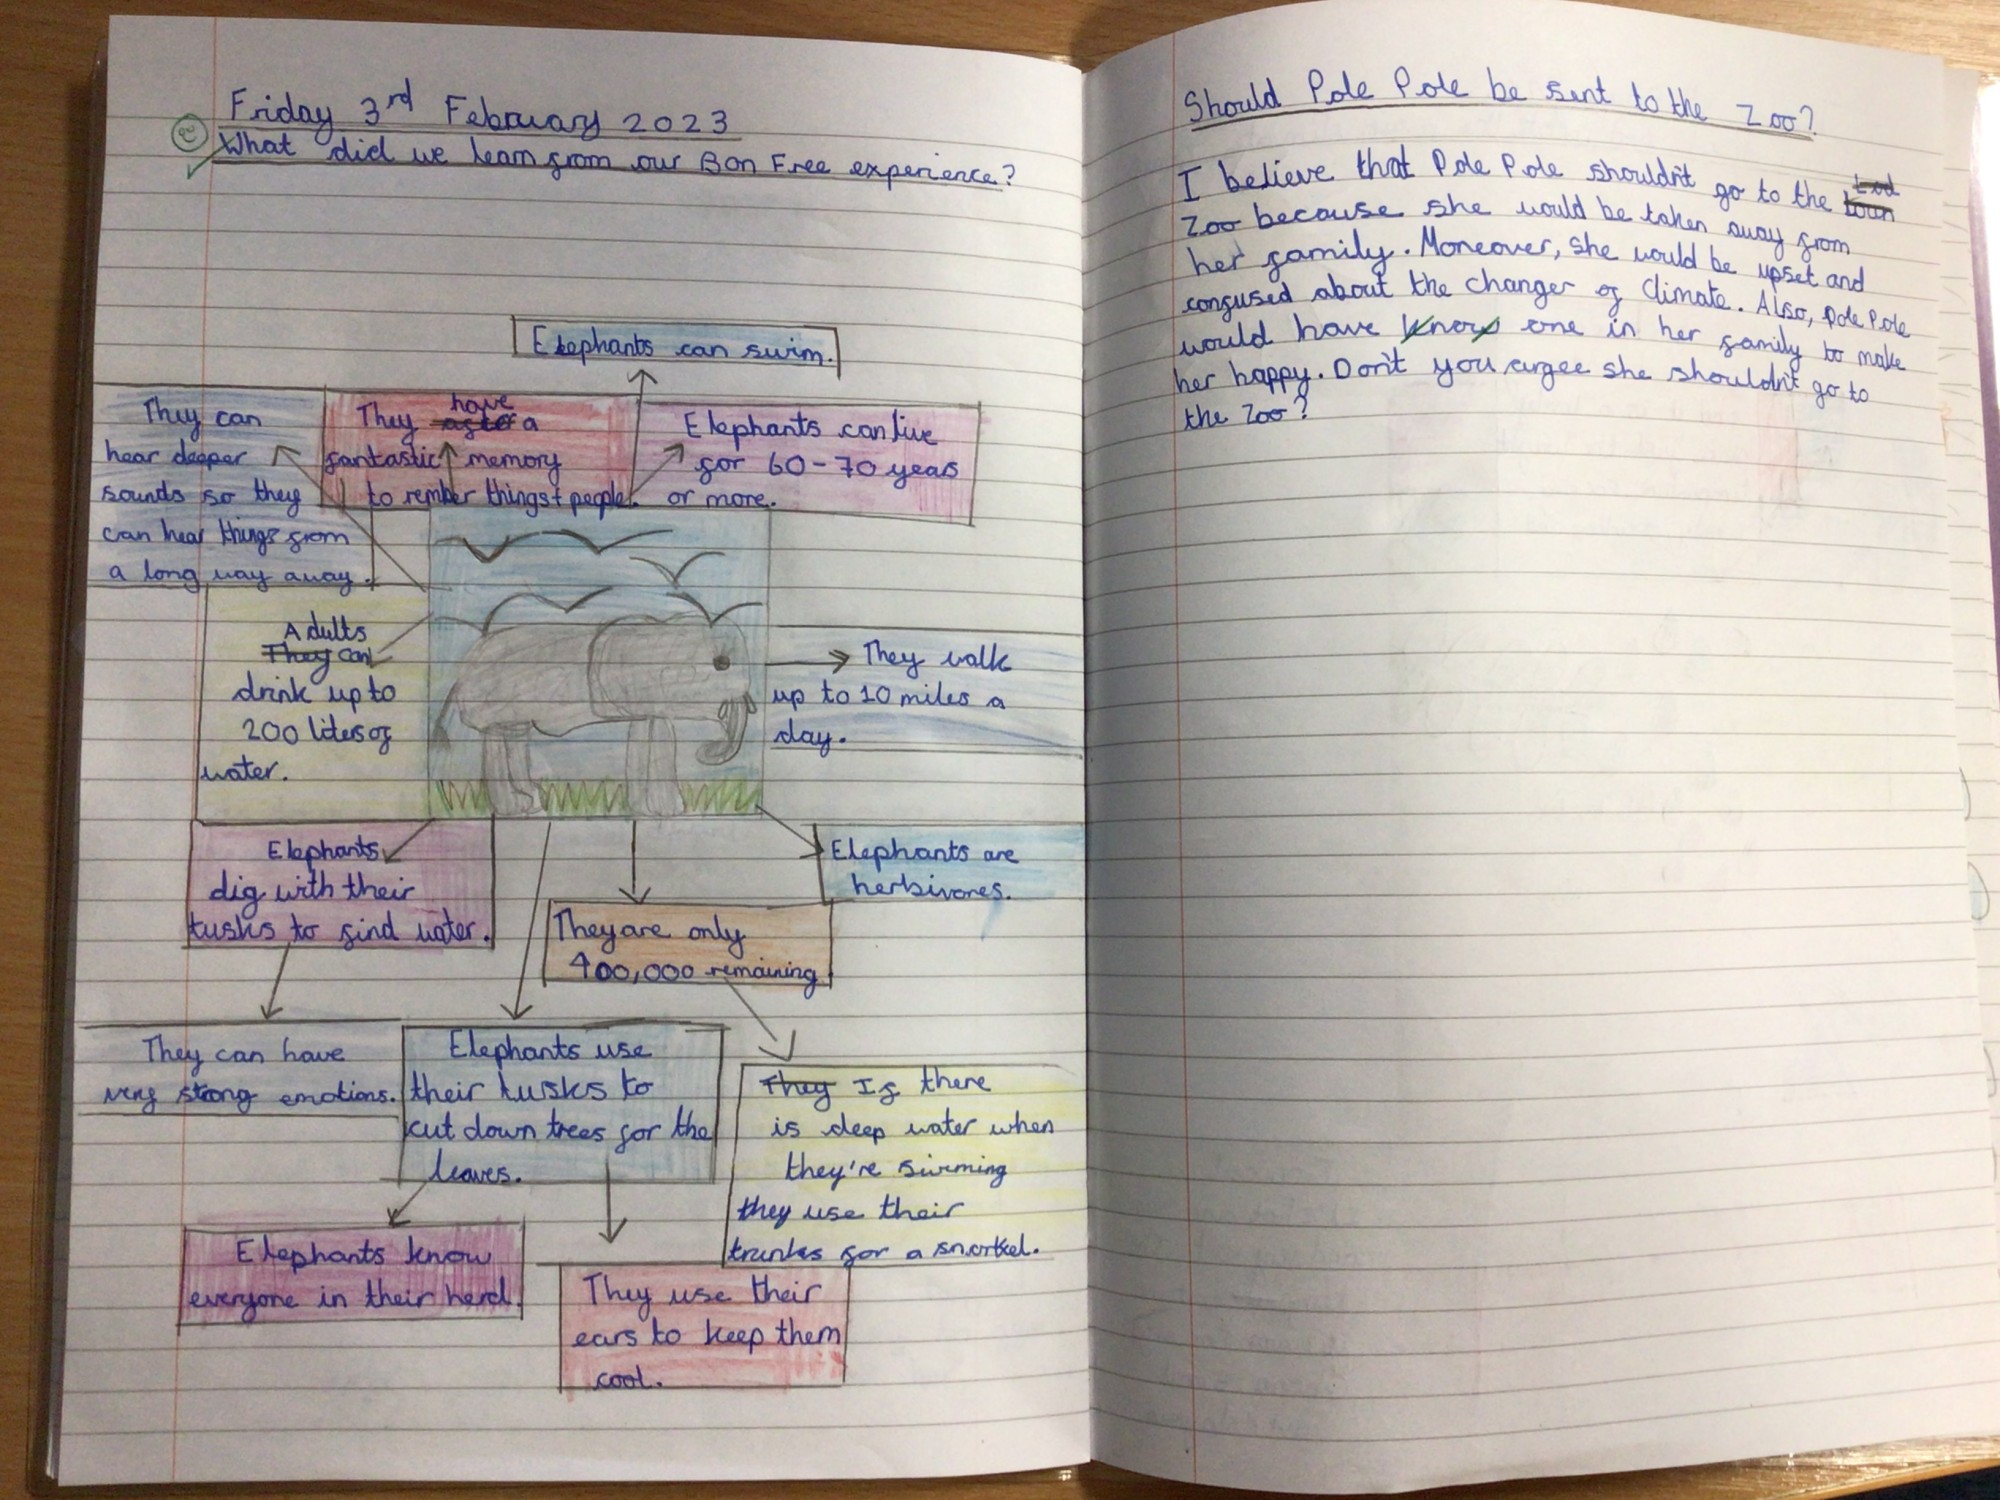 Friday 3rd February 2023
What did we learn from our Bon Free experience?
Elephants can swim.
They can
hear deeper
sounds so they
can hear things from
a long way away.
have
They a
fantastic memory
to rember things + people.
Elephants can live
for 60-70 years
or more.
Adults
They can
drink up to
200 liters of
water.
They walk
up to 10 miles a
day.
Elephants
dig with their
tusks to find water.
They are only
400,000 remaining
Elephants are
herbivores.
They can have
very strong emotions.
Elephants use
their tusks to
cut down trees for the
leaves.
They If there
is deep water when
they're swiming
they use their
trunks for a snorkel.
Elephants know
everyone in their herd.
They use their
ears to keep them
cool.
Should Pole Pole be sent to the Zoo?
I believe that Pole Pole shouldn't go to the
Zoo because she would be taken away from
her family. Moreover, she would be upset and
confused about the changer of climate. Also, Pole Pole
would have one in her family to make
her happy. Don't you argee she shouldn't go to
the Zoo?